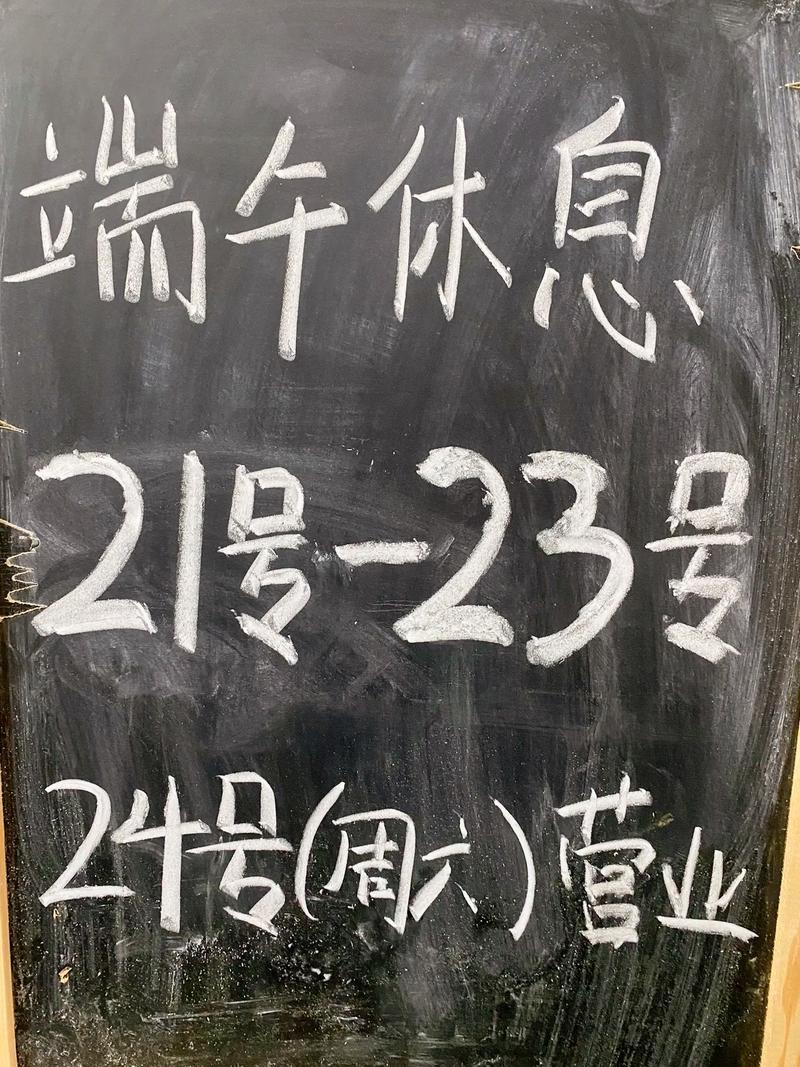 端午休息
21号-23号
24号(周六)营业